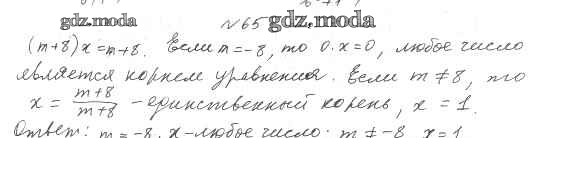 gdz.moda
№65 gdz.moda
(m+8)x=m+8. Если m=-8, то 0·x=0, любое число
является корнем уравнения. Если m≠8, то
x = m+8/m+8 - единственный корень, x = 1.
Ответ: m=-8. x-любое число. m≠-8 x=1